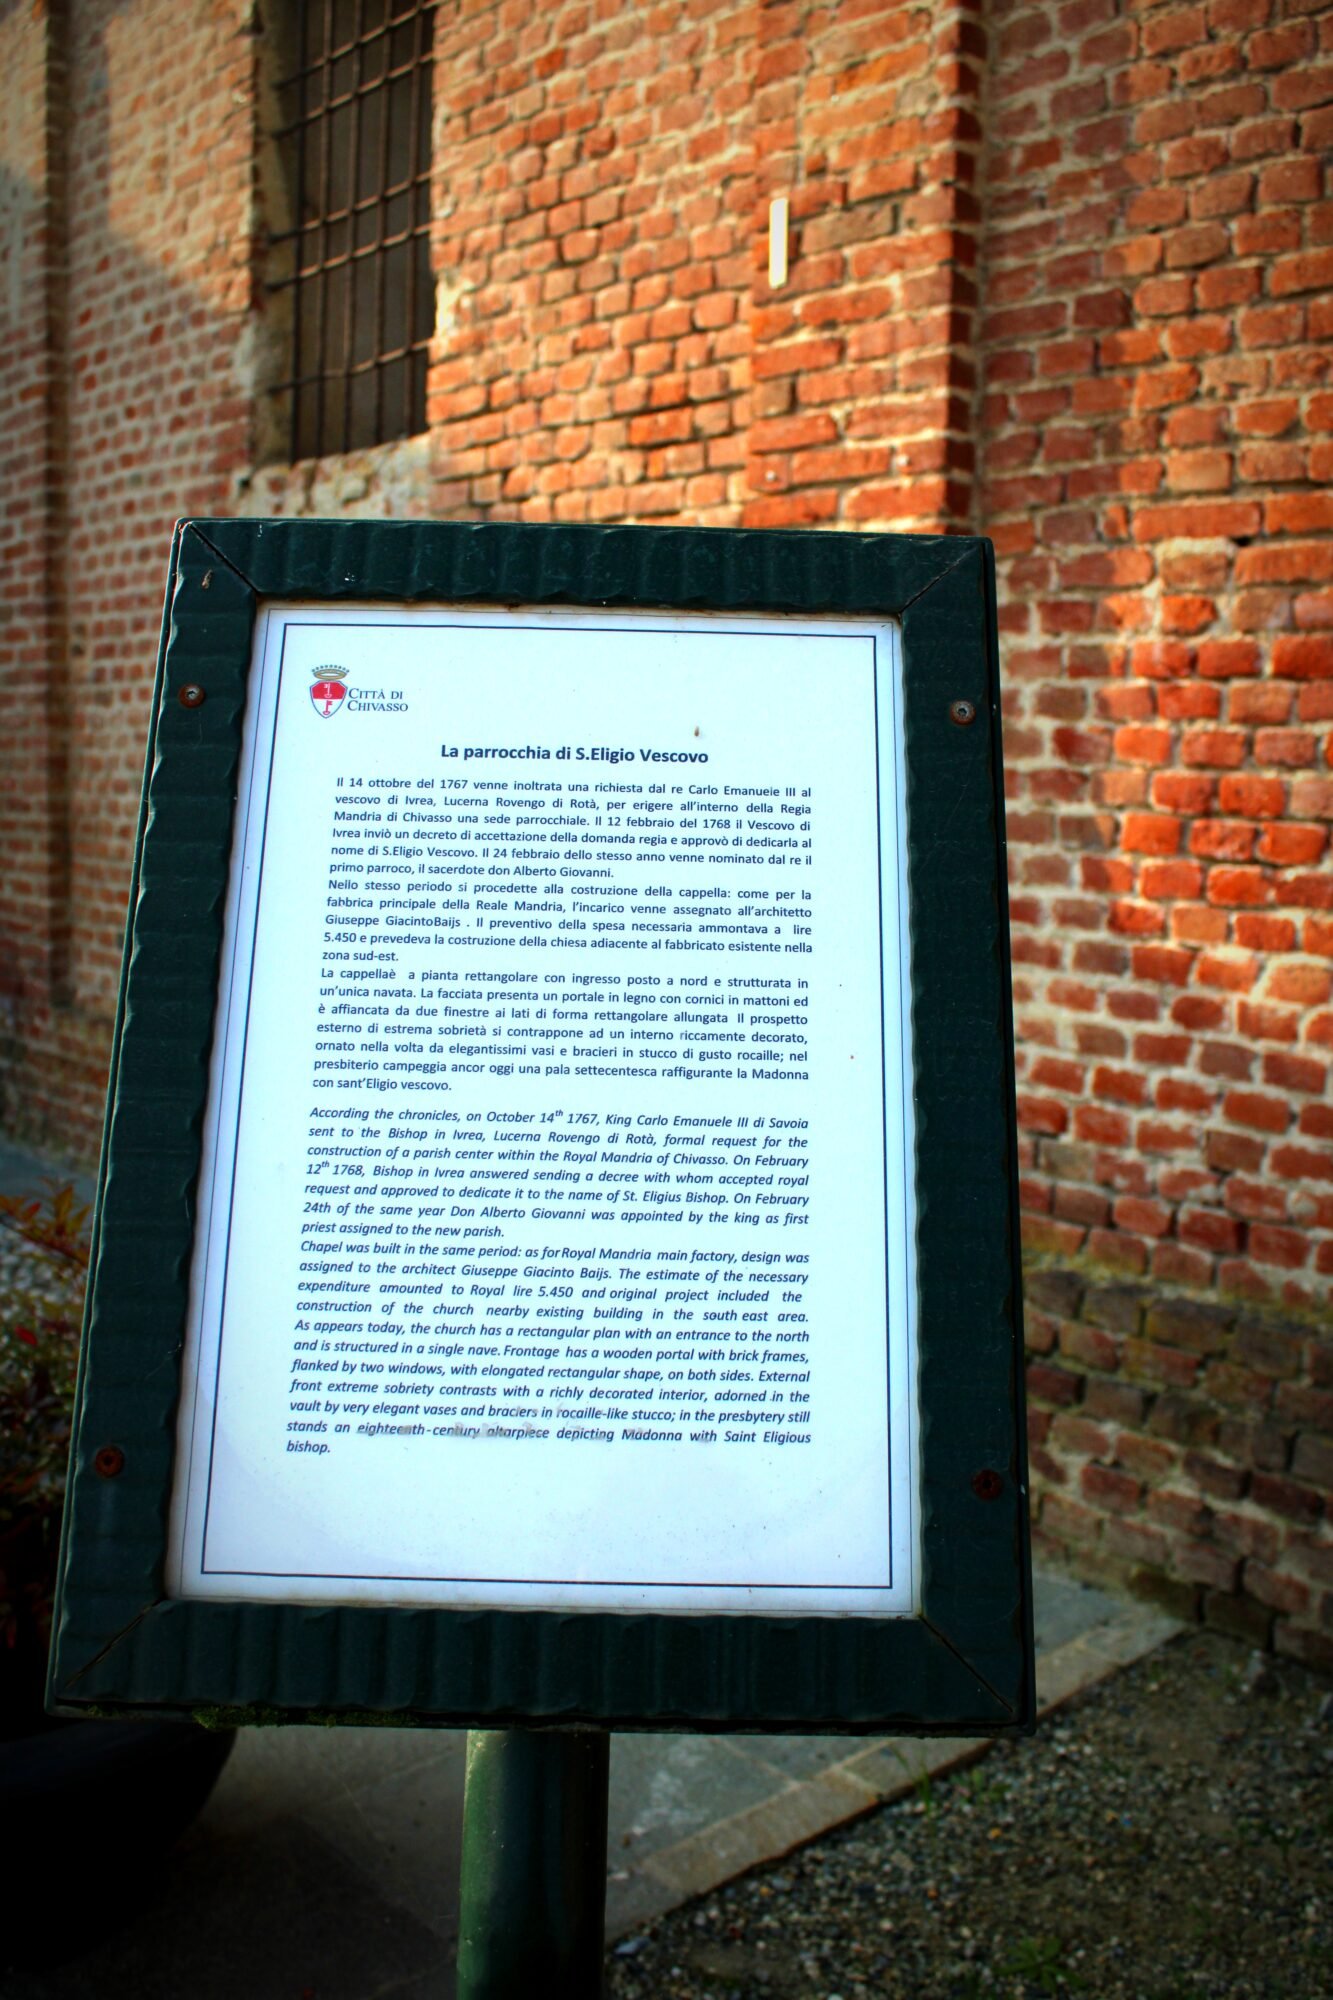 CITTÀ DI
CHIVASSO
La parrocchia di S.Eligio Vescovo
Il 14 ottobre del 1767 venne inoltrata una richiesta dal re Carlo Emanuele III al
vescovo di Ivrea, Lucerna Rovengo di Rotà, per erigere all'interno della Regia
Mandria di Chivasso una sede parrocchiale. Il 12 febbraio del 1768 il Vescovo di
Ivrea inviò un decreto di accettazione della domanda regia e approvò di dedicarla al
nome di S.Eligio Vescovo. Il 24 febbraio dello stesso anno venne nominato dal re il
primo parroco, il sacerdote don Alberto Giovanni.
Nello stesso periodo si procedette alla costruzione della cappella: come per la
fabbrica principale della Reale Mandria, l'incarico venne assegnato all'architetto
Giuseppe GiacintoBaijs . Il preventivo della spesa necessaria ammontava a lire
5.450 e prevedeva la costruzione della chiesa adiacente al fabbricato esistente nella
zona sud-est.
La cappellaè a pianta rettangolare con ingresso posto a nord e strutturata in
un'unica navata. La facciata presenta un portale in legno con cornici in mattoni ed
è affiancata da due finestre ai lati di forma rettangolare allungata Il prospetto
esterno di estrema sobrietà si contrappone ad un interno riccamente decorato,
ornato nella volta da elegantissimi vasi e bracieri in stucco di gusto rocaille; nel
presbiterio campeggia ancor oggi una pala settecentesca raffigurante la Madonna
con sant'Eligio vescovo.
According the chronicles, on October 14th 1767, King Carlo Emanuele III di Savoia
sent to the Bishop in Ivrea, Lucerna Rovengo di Rotà, formal request for the
construction of a parish center within the Royal Mandria of Chivasso. On February
12th 1768, Bishop in Ivrea answered sending a decree with whom accepted royal
request and approved to dedicate it to the name of St. Eligius Bishop. On February
24th of the same year Don Alberto Giovanni was appointed by the king as first
priest assigned to the new parish.
Chapel was built in the same period: as for Royal Mandria main factory, design was
assigned to the architect Giuseppe Giacinto Baijs. The estimate of the necessary
expenditure amounted to Royal lire 5.450 and original project included the
construction of the church nearby existing building in the south east area.
As appears today, the church has a rectangular plan with an entrance to the north
and is structured in a single nave. Frontage has a wooden portal with brick frames,
flanked by two windows, with elongated rectangular shape, on both sides. External
front extreme sobriety contrasts with a richly decorated interior, adorned in the
vault by very elegant vases and braciers in rocaille-like stucco; in the presbytery still
stands an eighteenth-century altarpiece depicting Madonna with Saint Eligious
bishop.